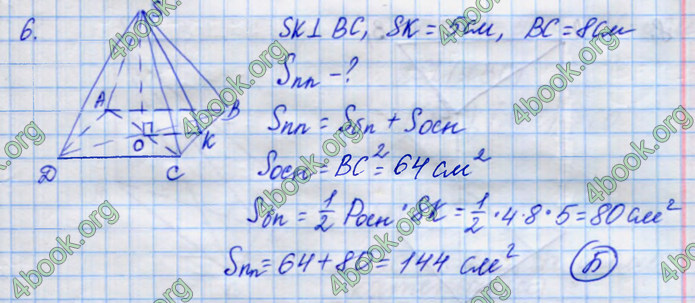 6.
SK⊥BC, SK = 5см, BC = 8см
Sпп – ?
Sпп = Sбп + Sосн
Sосн = BC² = 64 см²
Sбп = 1/2 Pосн · SK = 1/2 · 4 · 8 · 5 = 80 см²
Sпп = 64 + 80 = 144 см²
Б
A
B
O
K
D
C
4book.org
4book.org
4book.org
4book.org
4book.org
4book.org
4book.org
4book.org
4book.org